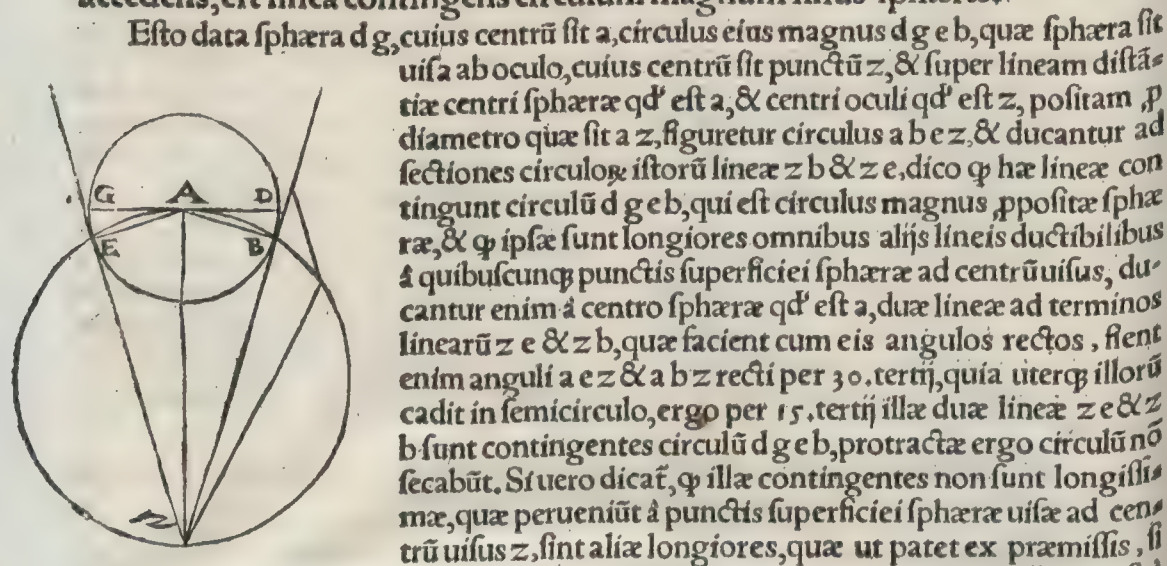 Esto data sphæra d g, cuius centrũ sit a, circulus eius magnus d g e b, quæ sphæra sit
uisa ab oculo, cuius centrũ sit punctũ z, & super lineam distã-
tiæ centri sphæræ qd' est a, & centri oculi qd' est z, positam ꝓ
diametro quæ sit a z, figuretur circulus a b e z, & ducantur ad
sectiones circuloꝝ istorũ lineæ z b & z e, dico ꝙ hæ lineæ con
tingunt circulũ d g e b, qui est circulus magnus ꝓpositæ sphæ
ræ, & ꝙ ipsæ sunt longiores omnibus alijs lineis ductibilibus
á quibuscunqꝫ punctis superficiei sphæræ ad centrũ uisus, du-
cantur enim á centro sphæræ qd' est a, duæ lineæ ad terminos
linearũ z e & z b, quæ facient cum eis angulos rectos, fient
enim anguli a e z & a b z recti per 30. tertij, quia uterqꝫ illorũ
cadit in semicirculo, ergo per 15. tertij illæ duæ lineæ z e & z
b sunt contingentes circulũ d g e b, protractæ ergo circulũ nõ
secabũt. Si uero dicat̃, ꝙ illæ contingentes non sunt longissi-
mæ, quæ perueniũt á punctis superficiei sphæræ uisæ ad cen-
trũ uisus z, sint aliæ longiores, quæ ut patet ex præmissis, si
G A D
E B
Z